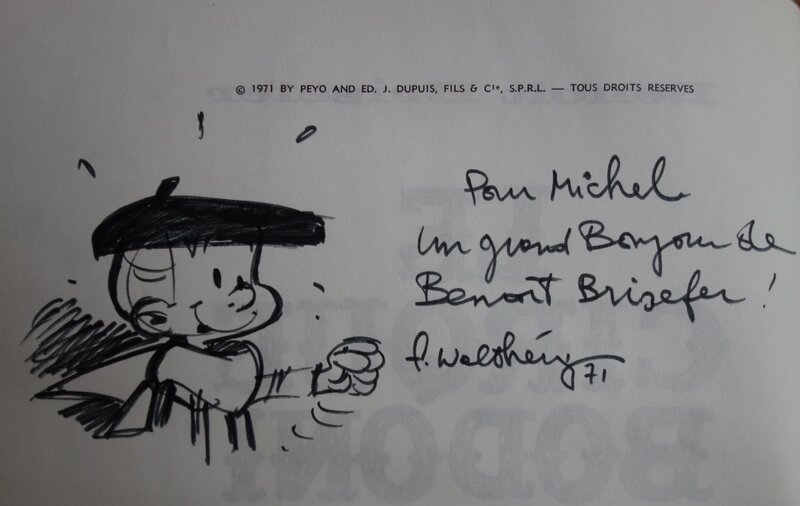 © 1971 BY PEYO AND ED. J. DUPUIS, FILS & Cie, S.P.R.L. — TOUS DROITS RESERVES
Pour Michel
un grand Bonjour de
Benoît Brisefer !
f. Walthéry 71
LE
CIRQUE
BODONI